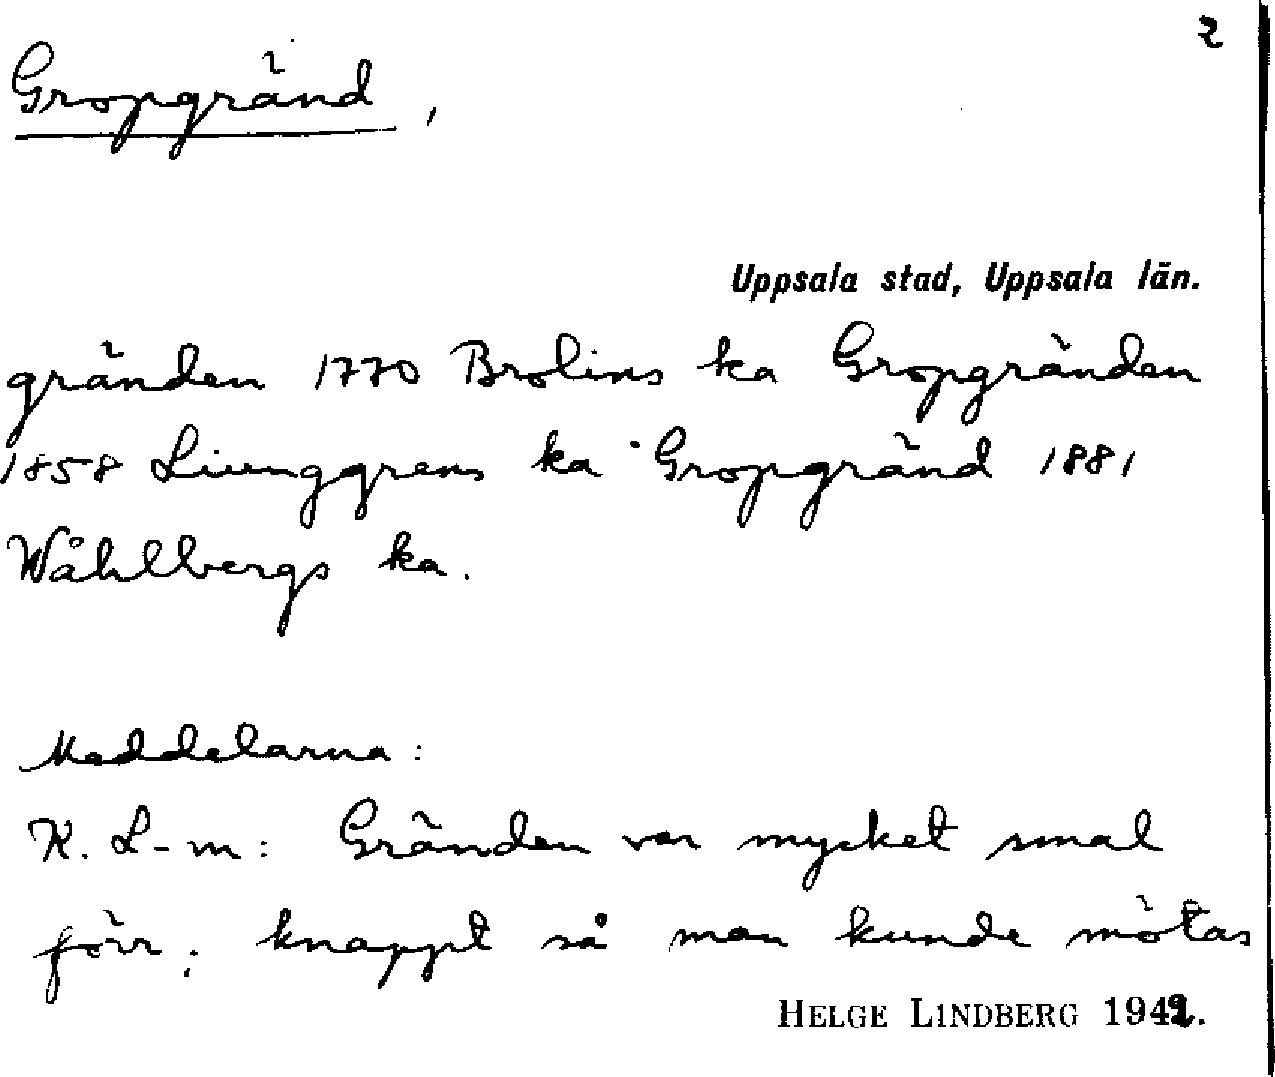 2
Gropgränd,
Uppsala stad, Uppsala län.
gränden 1770 Brolins ka Gropgränden
1858 Liunggrens ka Gropgränd 1881
Wåhlbergs ka.
Meddelarna:
K. L-m: Gränden var mycket smal
förr; knappt så man kunde mötas
HELGE LINDBERG 1942.